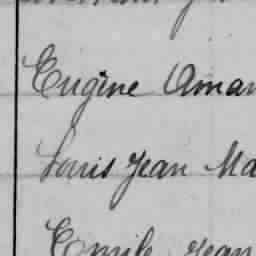 Eugène Aman
Louis Jean Ma
Emile Jean